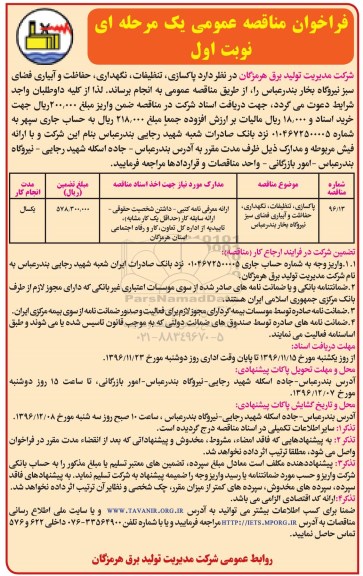 فراخوان مناقصه عمومی یک مرحله ای
نوبت اول
شرکت مدیریت تولید برق هرمزگان در نظر دارد پاکسازی، تنظیفات، نگهداری، حفاظت و آبیاری فضای
سبز نیروگاه بخار بندرعباس را، از طریق مناقصه عمومی به انجام برساند. لذا از کلیه داوطلبان واجد
شرایط دعوت می گردد، جهت دریافت اسناد شرکت در مناقصه ضمن واریز مبلغ ۲۰۰،۰۰۰ ریال جهت
خرید اسناد و ۱۸،۰۰۰ ریال مالیات بر ارزش افزوده جمعاً مبلغ ۲۱۸،۰۰۰ ریال به حساب جاری سپهر به
شماره ۰۱۰۴۶۷۲۵۰۰۰۰۵ نزد بانک صادرات شعبه شهید رجایی بندرعباس بنام این شرکت و با ارائه
فیش مربوطه و مدارک ذیل ظرف مدت مقرر به آدرس بندرعباس - جاده اسکله شهید رجایی - نیروگاه
بندرعباس -امور بازرگانی - واحد مناقصات و قراردادها مراجعه فرمایید.
شماره مناقصه
موضوع مناقصه
مدارک مورد نیاز جهت اخذ اسناد مناقصه
مبلغ تضمین (ریال)
مدت انجام کار
۹۶/۱۳
پاکسازی، تنظیفات، نگهداری، حفاظت و آبیاری فضای سبز نیروگاه بخار بندرعباس
ارائه معرفی نامه کتبی - داشتن شخصیت حقوقی - ارائه سابقه کار (حداقل یک کار مشابه)، تاییدیه از اداره کل تعاون، کار و رفاه اجتماعی استان هرمزگان
۵۷۸،۳۰۰،۰۰۰
یکسال
تضمین شرکت در فرایند ارجاع کار (مناقصه):
۱.۱.واریز وجه به شماره حساب جاری ۰۱۰۴۶۷۲۵۰۰۰۰۵ نزد بانک صادرات ایران شعبه شهید رجایی بندرعباس به
نام شرکت مدیریت تولید برق هرمزگان.
۲.ضمانتنامه بانکی و یا ضمانت نامه های صادره شده از سوی موسسات اعتباری غیر بانکی که دارای مجوز لازم از طرف
بانک مرکزی جمهوری اسلامی ایران هستند.
۳.ضمانت نامه صادره توسط موسسات بیمه گر دارای مجوز لازم برای فعالیت و صدور ضمانت نامه از سوی بیمه مرکزی ایران.
۴.ضمانت نامه های صادره توسط صندوق های ضمانت دولتی که به موجب قانون تاسیس شده یا می شوند و طبق
اساسنامه فعالیت می نمایند.
مهلت دریافت اسناد:
از روز یکشنبه مورخ ۱۳۹۶/۱۱/۱۵ تا پایان وقت اداری روز دوشنبه مورخ ۱۳۹۶/۱۱/۲۳.
محل و مهلت تحویل پاکات پیشنهادی:
آدرس بندرعباس-جاده اسکله شهید رجایی-نیروگاه بندرعباس-امور بازرگانی، تا ساعت ۱۵ روز دوشنبه
مورخ ۱۳۹۶/۱۲/۰۷.
محل و تاریخ گشایش پاکات پیشنهادی:
آدرس بندرعباس-جاده اسکله شهید رجایی-نیروگاه بندرعباس ، ساعت ۱۰ صبح روز سه شنبه مورخ ۱۳۹۶/۱۲/۰۸.
تذکر۱: سایر اطلاعات تکمیلی در اسناد مناقصه درج گردیده است.
تذکر۲: به پیشنهادهایی که فاقد امضاء، مشروط، مخدوش و پیشنهاداتی که بعد از انقضاء مدت مقرر در فراخوان
واصل می شود، مطلقا ترتیب اثر داده نخواهد شد.
تذکر۳: پیشنهاددهنده مکلف است معادل مبلغ سپرده، تضمین های معتبر تسلیم یا مبلغ مذکور را به حساب بانکی
شرکت واریز و حسب مورد ضمانتنامه یا رسید واریز وجه را ضمیمه پیشنهاد به شرکت تسلیم نماید. به پیشنهادهای فاقد
سپرده، سپرده های مخدوش، سپرده های کمتر از میزان مقرر، چک شخصی و نظایر آن ترتیب اثر داده نخواهد شد.
تذکر۴: ارائه کد اقتصادی الزامی می باشد.
ضمنا برای کسب اطلاعات بیشتر می توانید به آدرس WWW.TAVANIR.ORG.IR و یا سایت ملی اطلاع رسانی
مناقصات به آدرس HTTP://IETS.MPORG.IR مراجعه فرمایید و یا با شماره تلفن ۳۳۵۶۴۹۰۰-۰۷۶ داخلی ۶۲۲ و ۵۷۶
تماس حاصل نمایید.
روابط عمومی شرکت مدیریت تولید برق هرمزگان